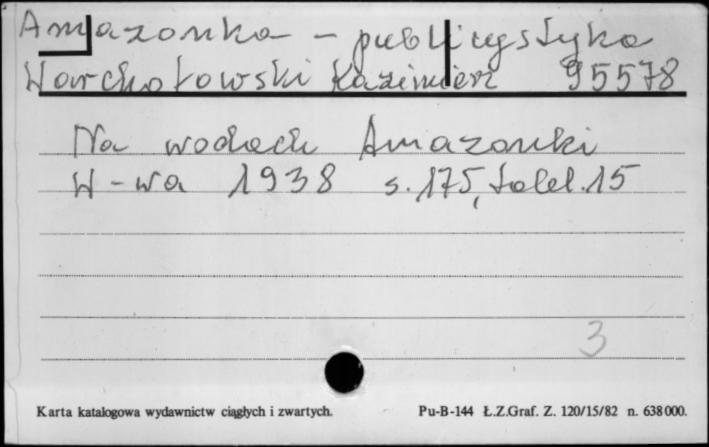 Amazonka - publicystyka
Warchołowski Kazimierz 95578
Na wodach Amazonki
W-wa 1938 s. 175, tabl. 15
3
Karta katalogowa wydawnictw ciągłych i zwartych. Pu-B-144 Ł.Z.Graf. Z. 120/15/82 n. 638000.